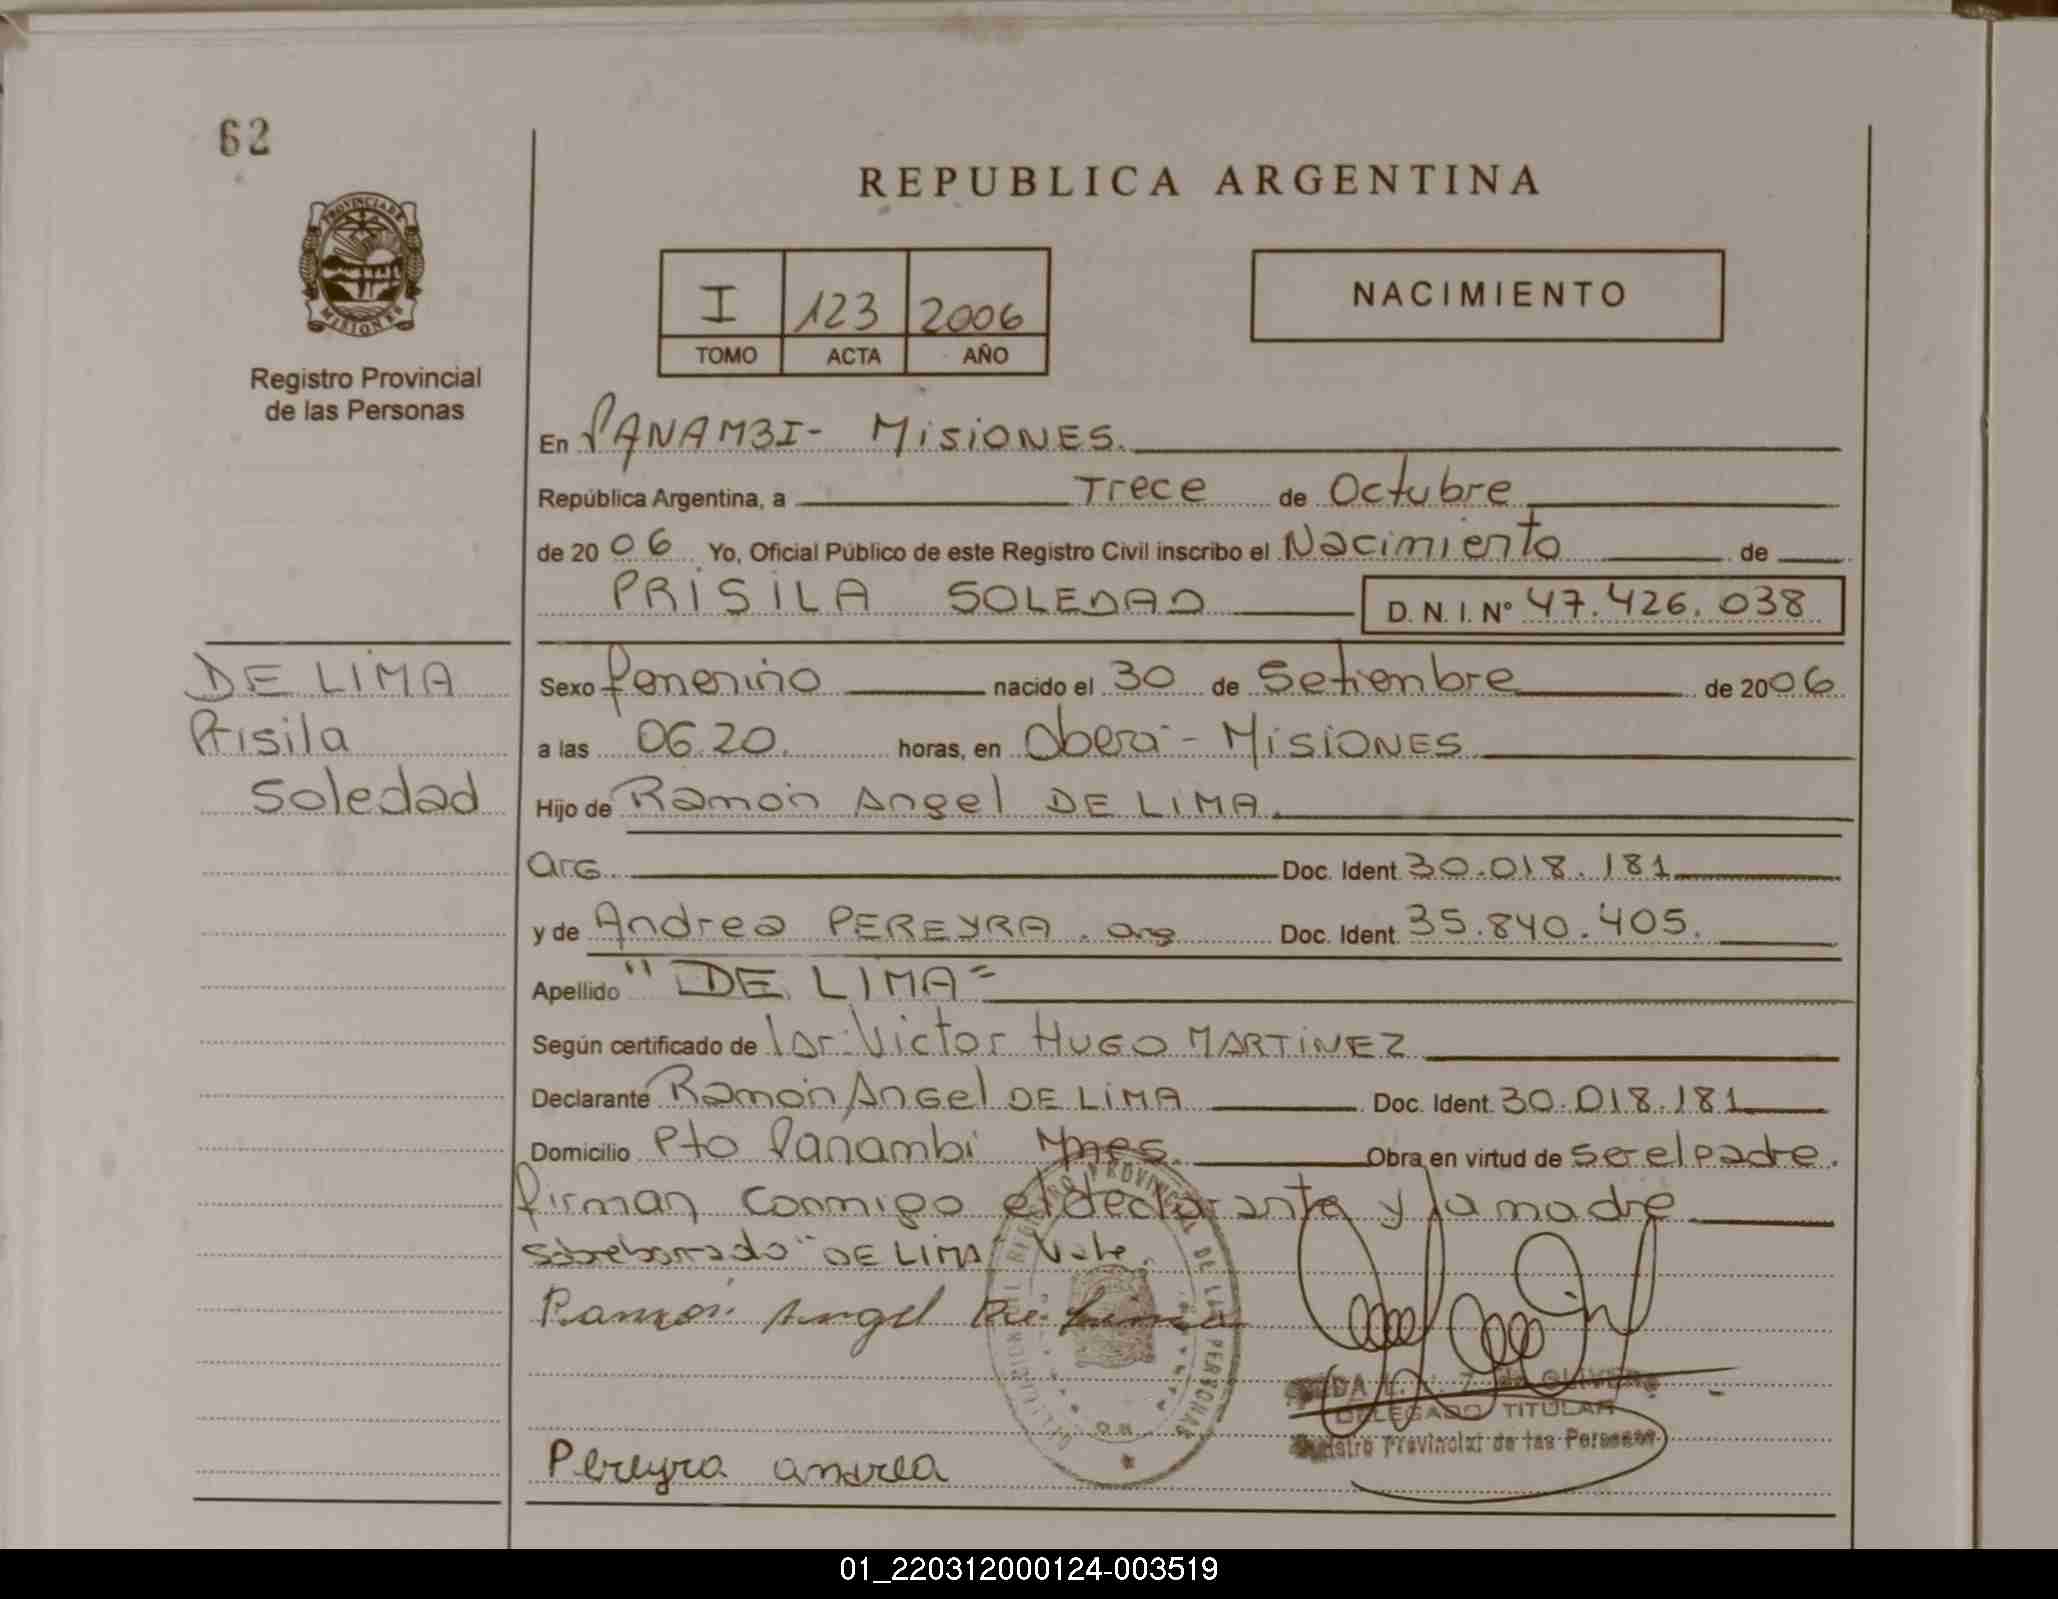 62
REPUBLICA ARGENTINA
PROVINCIA DE
MISIONES
Registro Provincial
de las Personas
I 123 2006
TOMO ACTA AÑO
NACIMIENTO
En PANAMBI- MISIONES.
República Argentina, a Trece de Octubre
de 2006 Yo, Oficial Público de este Registro Civil inscribo el Nacimiento de
PRISILA SOLEDAD D. N. I. Nº 47.426.038
DE LIMA
Prisila
Soledad
Sexo femenino nacido el 30 de Setiembre de 2006
a las 06.20. horas, en Oberá - MISIONES
Hijo de Ramón Angel DE LIMA.
arg. Doc. Ident. 30.018.181
y de Andrea PEREYRA. arg Doc. Ident. 35.840.405.
Apellido "DE LIMA"
Según certificado de Dr. Victor HUGO MARTINEZ
Declarante Ramón Angel DE LIMA Doc. Ident. 30.018.181
Domicilio Pto Panambi Mnes. Obra en virtud de ser el padre.
firman conmigo el declarante y la madre
sobreborrado "DE LIMA" Vale.
Ramón Angel De Lima
REGISTRO PROVINCIAL DE LAS PERSONAS
DE OLIVERA
DELEGADO TITULAR
Registro Provincial de las Personas
Pereyra andrea
01_220312000124-003519